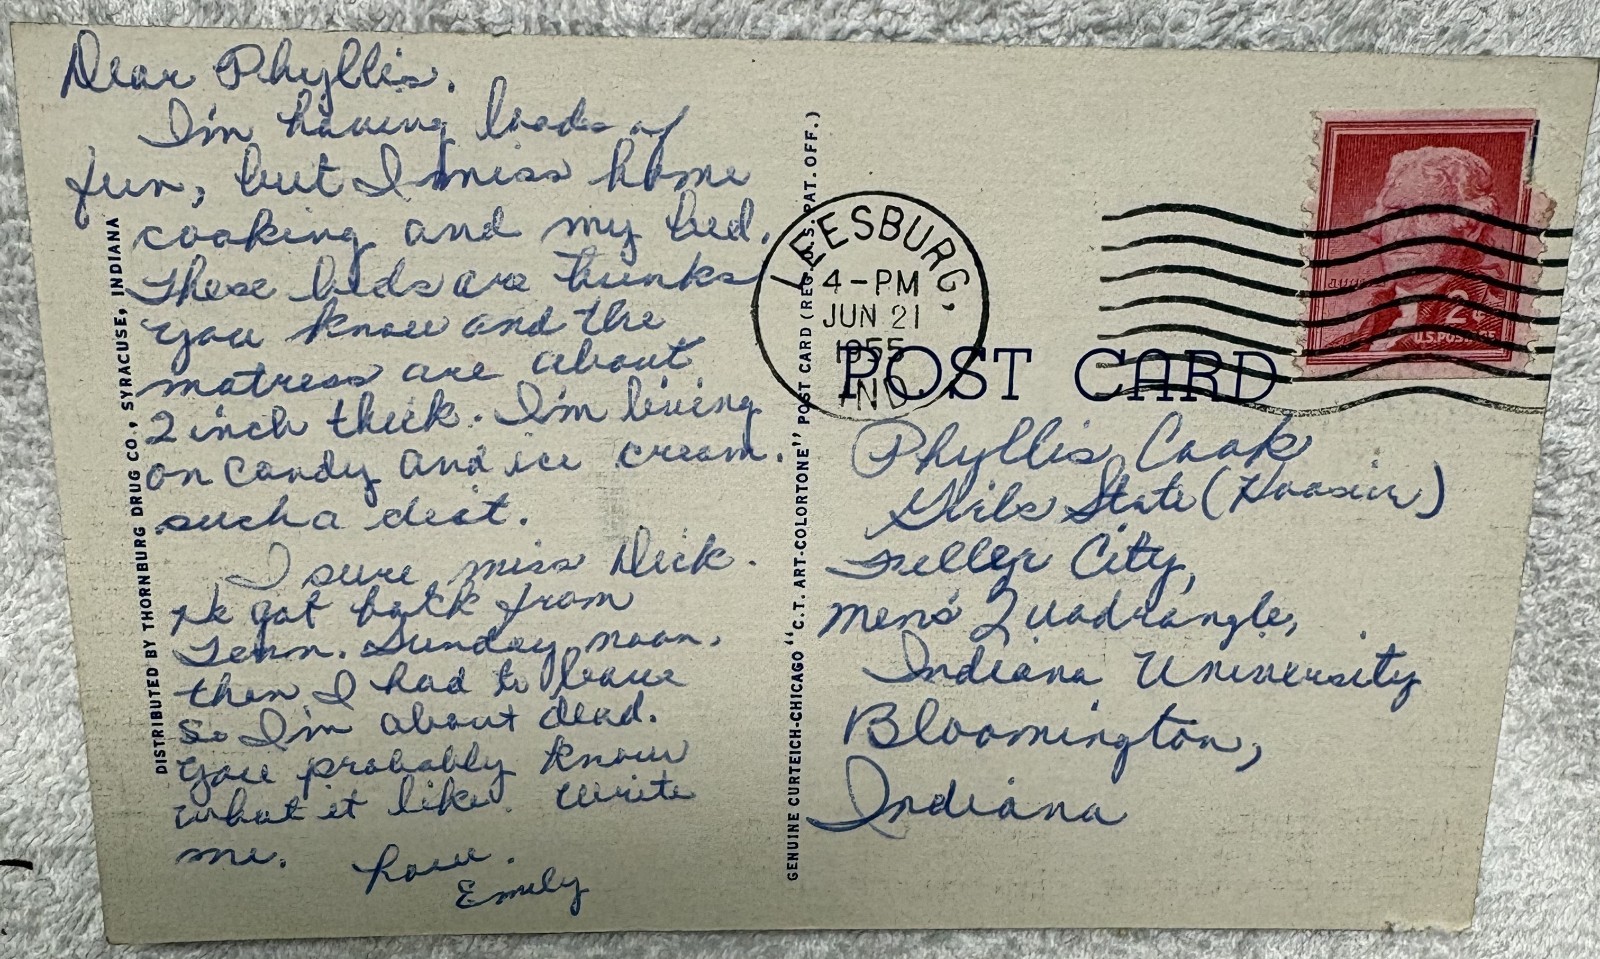 Dear Phyllis.
I'm having loads of
fun, but I miss home
cooking and my bed.
These beds are trunks
you know and the
matress are about
2 inch thick. I'm living
on candy and ice cream.
such a diet.
I sure miss Dick.
He got back from
Tenn. Sunday noon.
then I had to leave
so I'm about dead.
you probably know
what it like. Write
me.
Love.
Emily
DISTRIBUTED BY THORNBURG DRUG CO., SYRACUSE, INDIANA
GENUINE CURTEICH-CHICAGO "C.T. ART-COLORTONE" POST CARD (REG. U.S. PAT. OFF.)
LEESBURG,
4-PM
JUN 21
1955
IND.
2¢
U.S. POSTAGE
POST CARD
Phyllis Cook
Girls State (Hoosier)
City,
Men's Quadrangle,
Indiana University
Bloomington,
Indiana